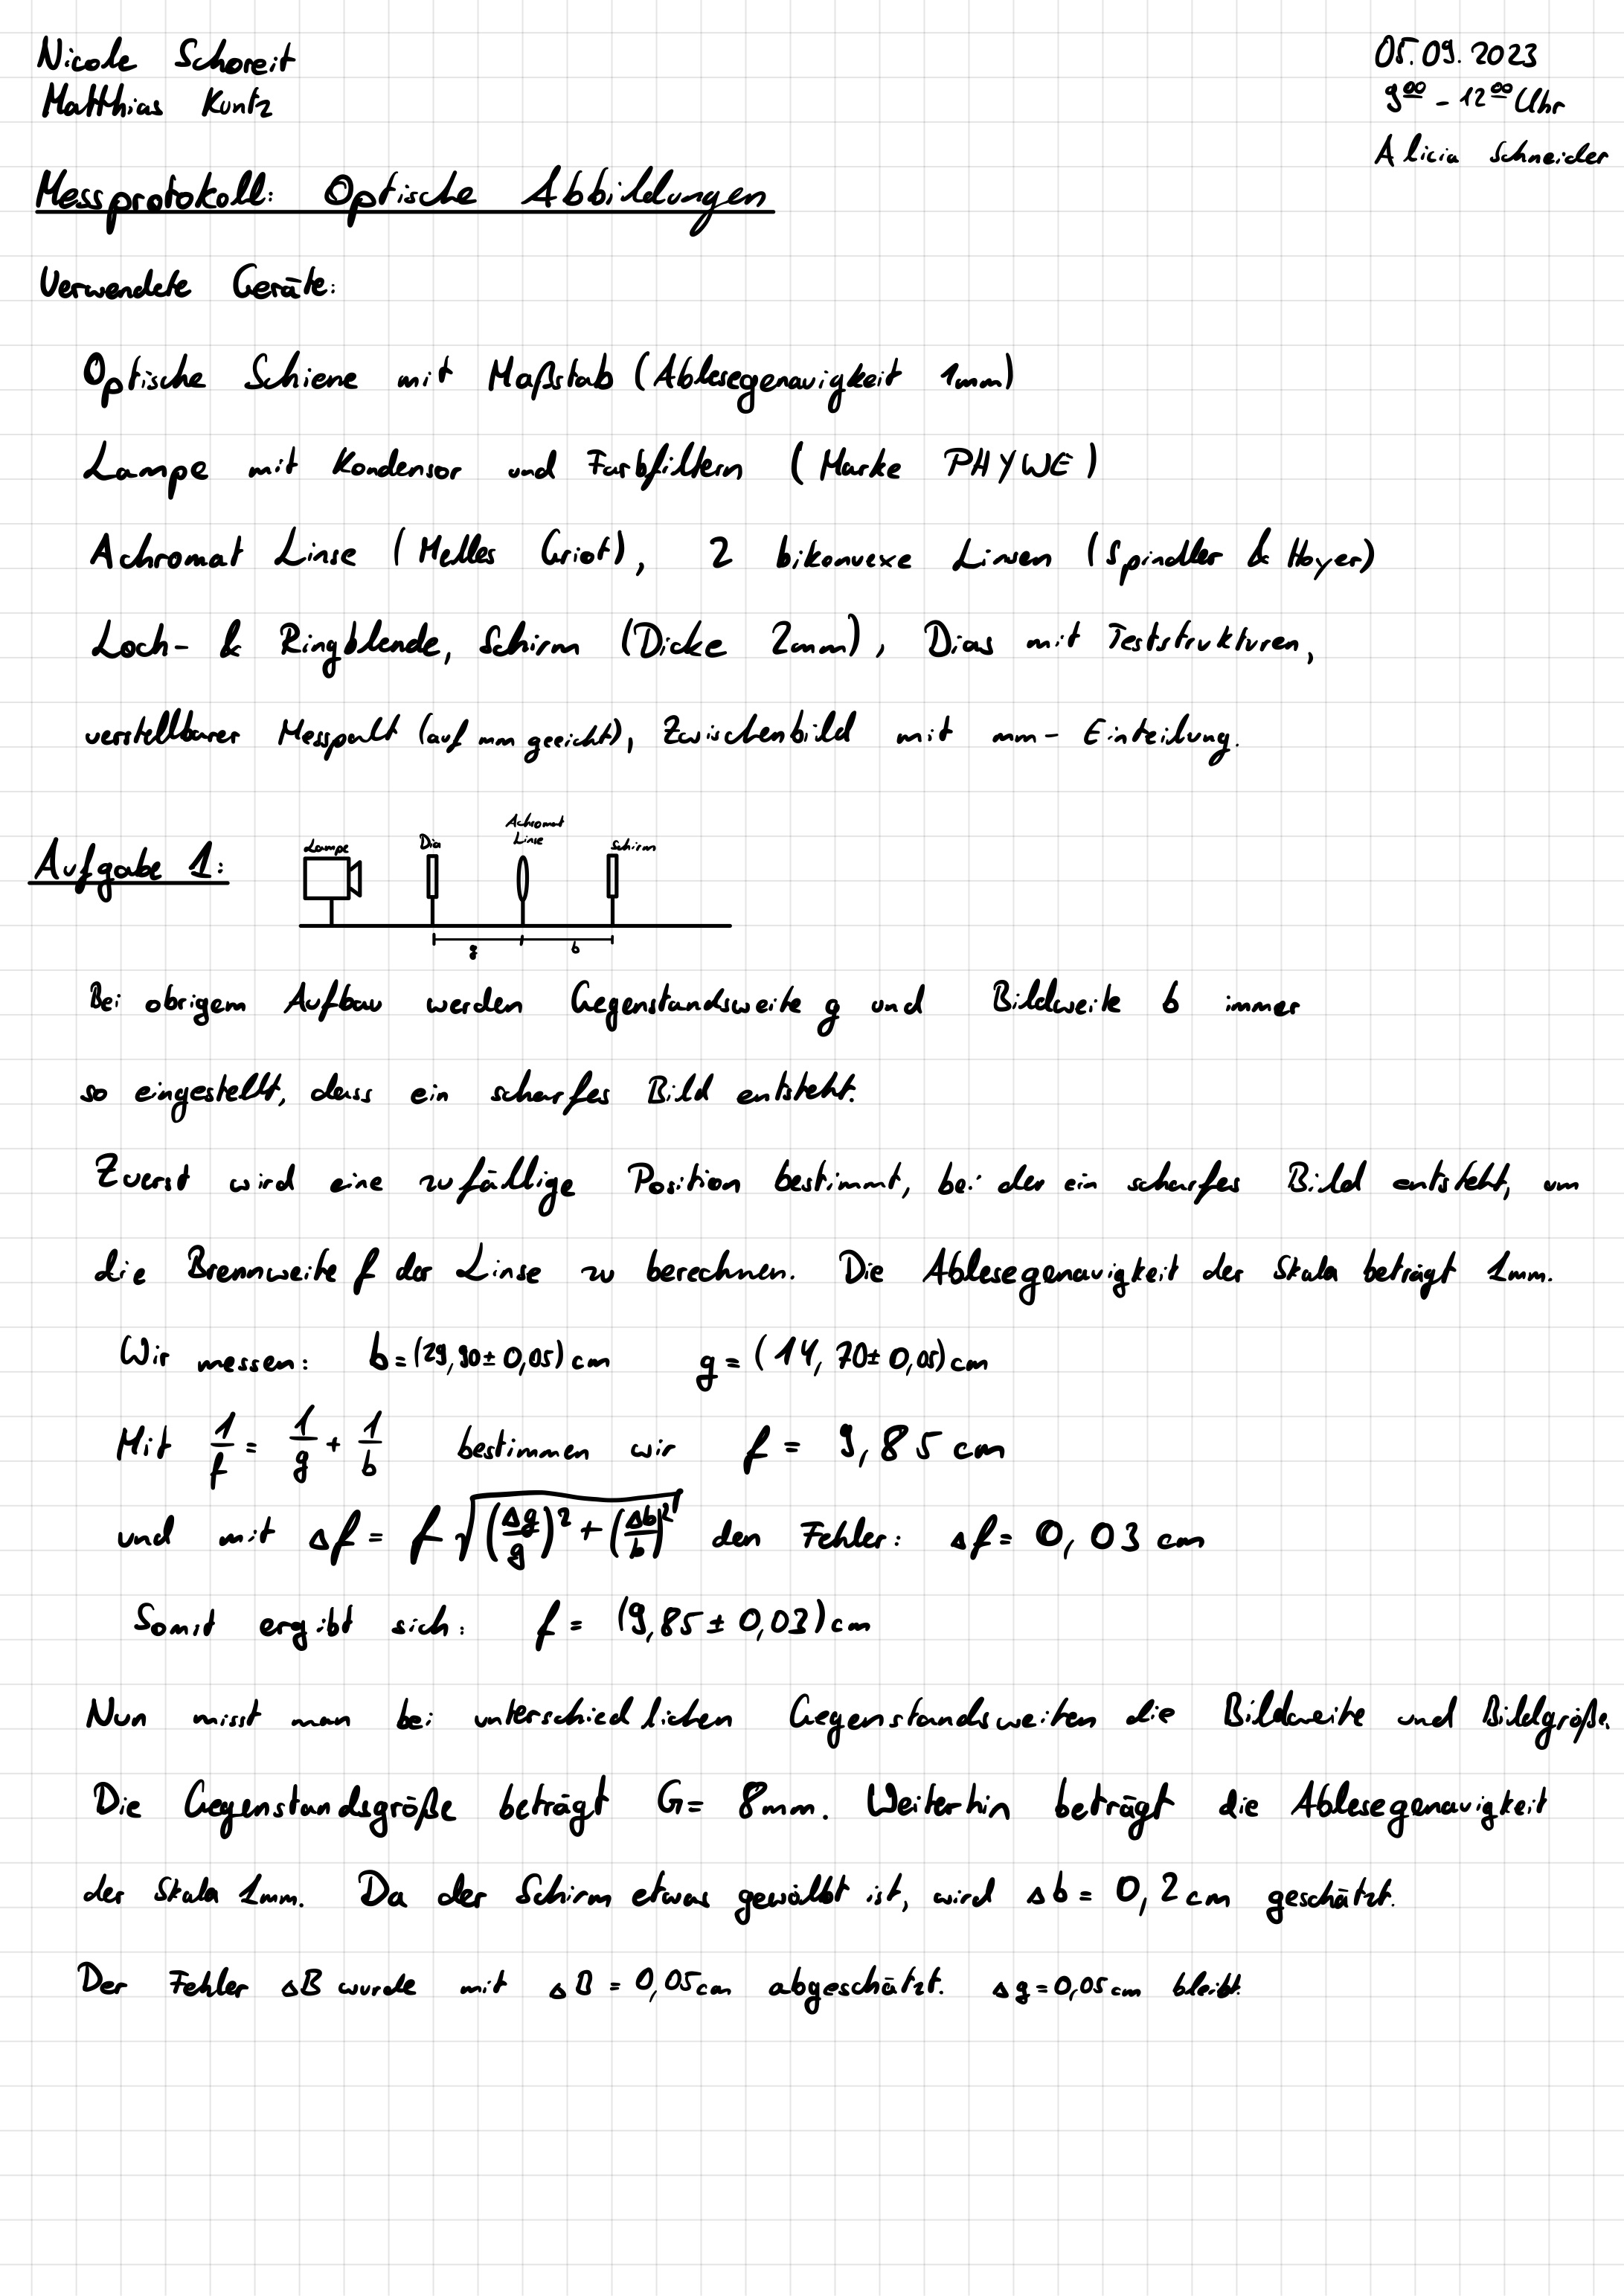 Nicole Schoreit
05.09.2023
Matthias Kuntz
9⁰⁰ - 12⁰⁰ Uhr
Alicia Schneider
Messprotokoll: Optische Abbildungen
Verwendete Geräte:
Optische Schiene mit Maßstab (Ablesegenauigkeit 1mm)
Lampe mit Kondensor und Farbfiltern (Marke PHYWE)
Achromat Linse (Melles Griot), 2 bikonvexe Linsen (Spindler & Hoyer)
Loch- & Ringblende, Schirm (Dicke 2mm), Dias mit Teststrukturen,
verstellbarer Messpalt (auf mm geeicht), Zwischenbild mit mm- Einteilung.
Aufgabe 1:
Lampe Dia Achromat Linse Schirm
g b
Bei obrigem Aufbau werden Gegenstandsweite g und Bildweite b immer
so eingestellt, dass ein scharfes Bild entsteht.
Zuerst wird eine zufällige Position bestimmt, bei der ein scharfes Bild entsteht, um
die Brennweite f der Linse zu berechnen. Die Ablesegenauigkeit der Skala beträgt 1mm.
Wir messen: b = (29,90 ± 0,05) cm g = (14,70 ± 0,05) cm
Mit 1/f = 1/g + 1/b bestimmen wir f = 9,85 cm
und mit Δf = f √((Δg/g)² + (Δb/b)²) den Fehler: Δf = 0,03 cm
Somit ergibt sich: f = (9,85 ± 0,03) cm
Nun misst man bei unterschiedlichen Gegenstandsweiten die Bildweite und Bildgröße.
Die Gegenstandsgröße beträgt G = 8mm. Weiterhin beträgt die Ablesegenauigkeit
der Skala 1mm. Da der Schirm etwas gewölbt ist, wird Δb = 0,2 cm geschätzt.
Der Fehler ΔB wurde mit ΔB = 0,05 cm abgeschätzt. Δg = 0,05 cm bleibt.